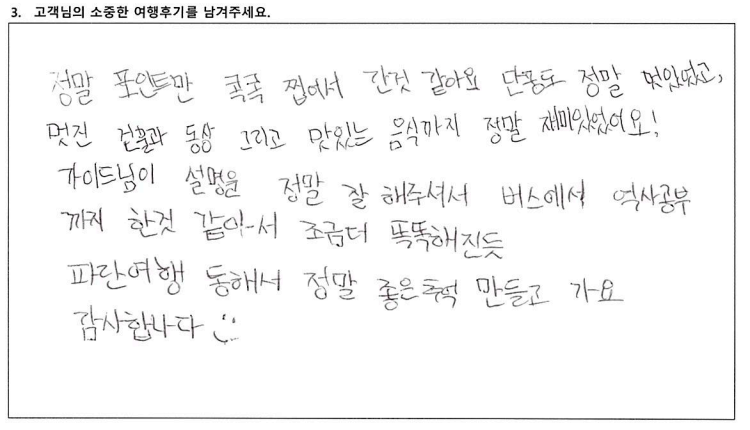 3. 고객님의 소중한 여행후기를 남겨주세요.
정말 포인트만 콕콕 찝어서 간것 같아요 단풍도 정말 멋있었고,
멋진 건물과 동상 그리고 맛있는 음식까지 정말 재미있었어요!
가이드님이 설명을 정말 잘 해주셔서 버스에서 역사공부
까지 한것 같아서 조금더 똑똑해진듯
파란여행 통해서 정말 좋은추억 만들고 가요
감사합니다 :)